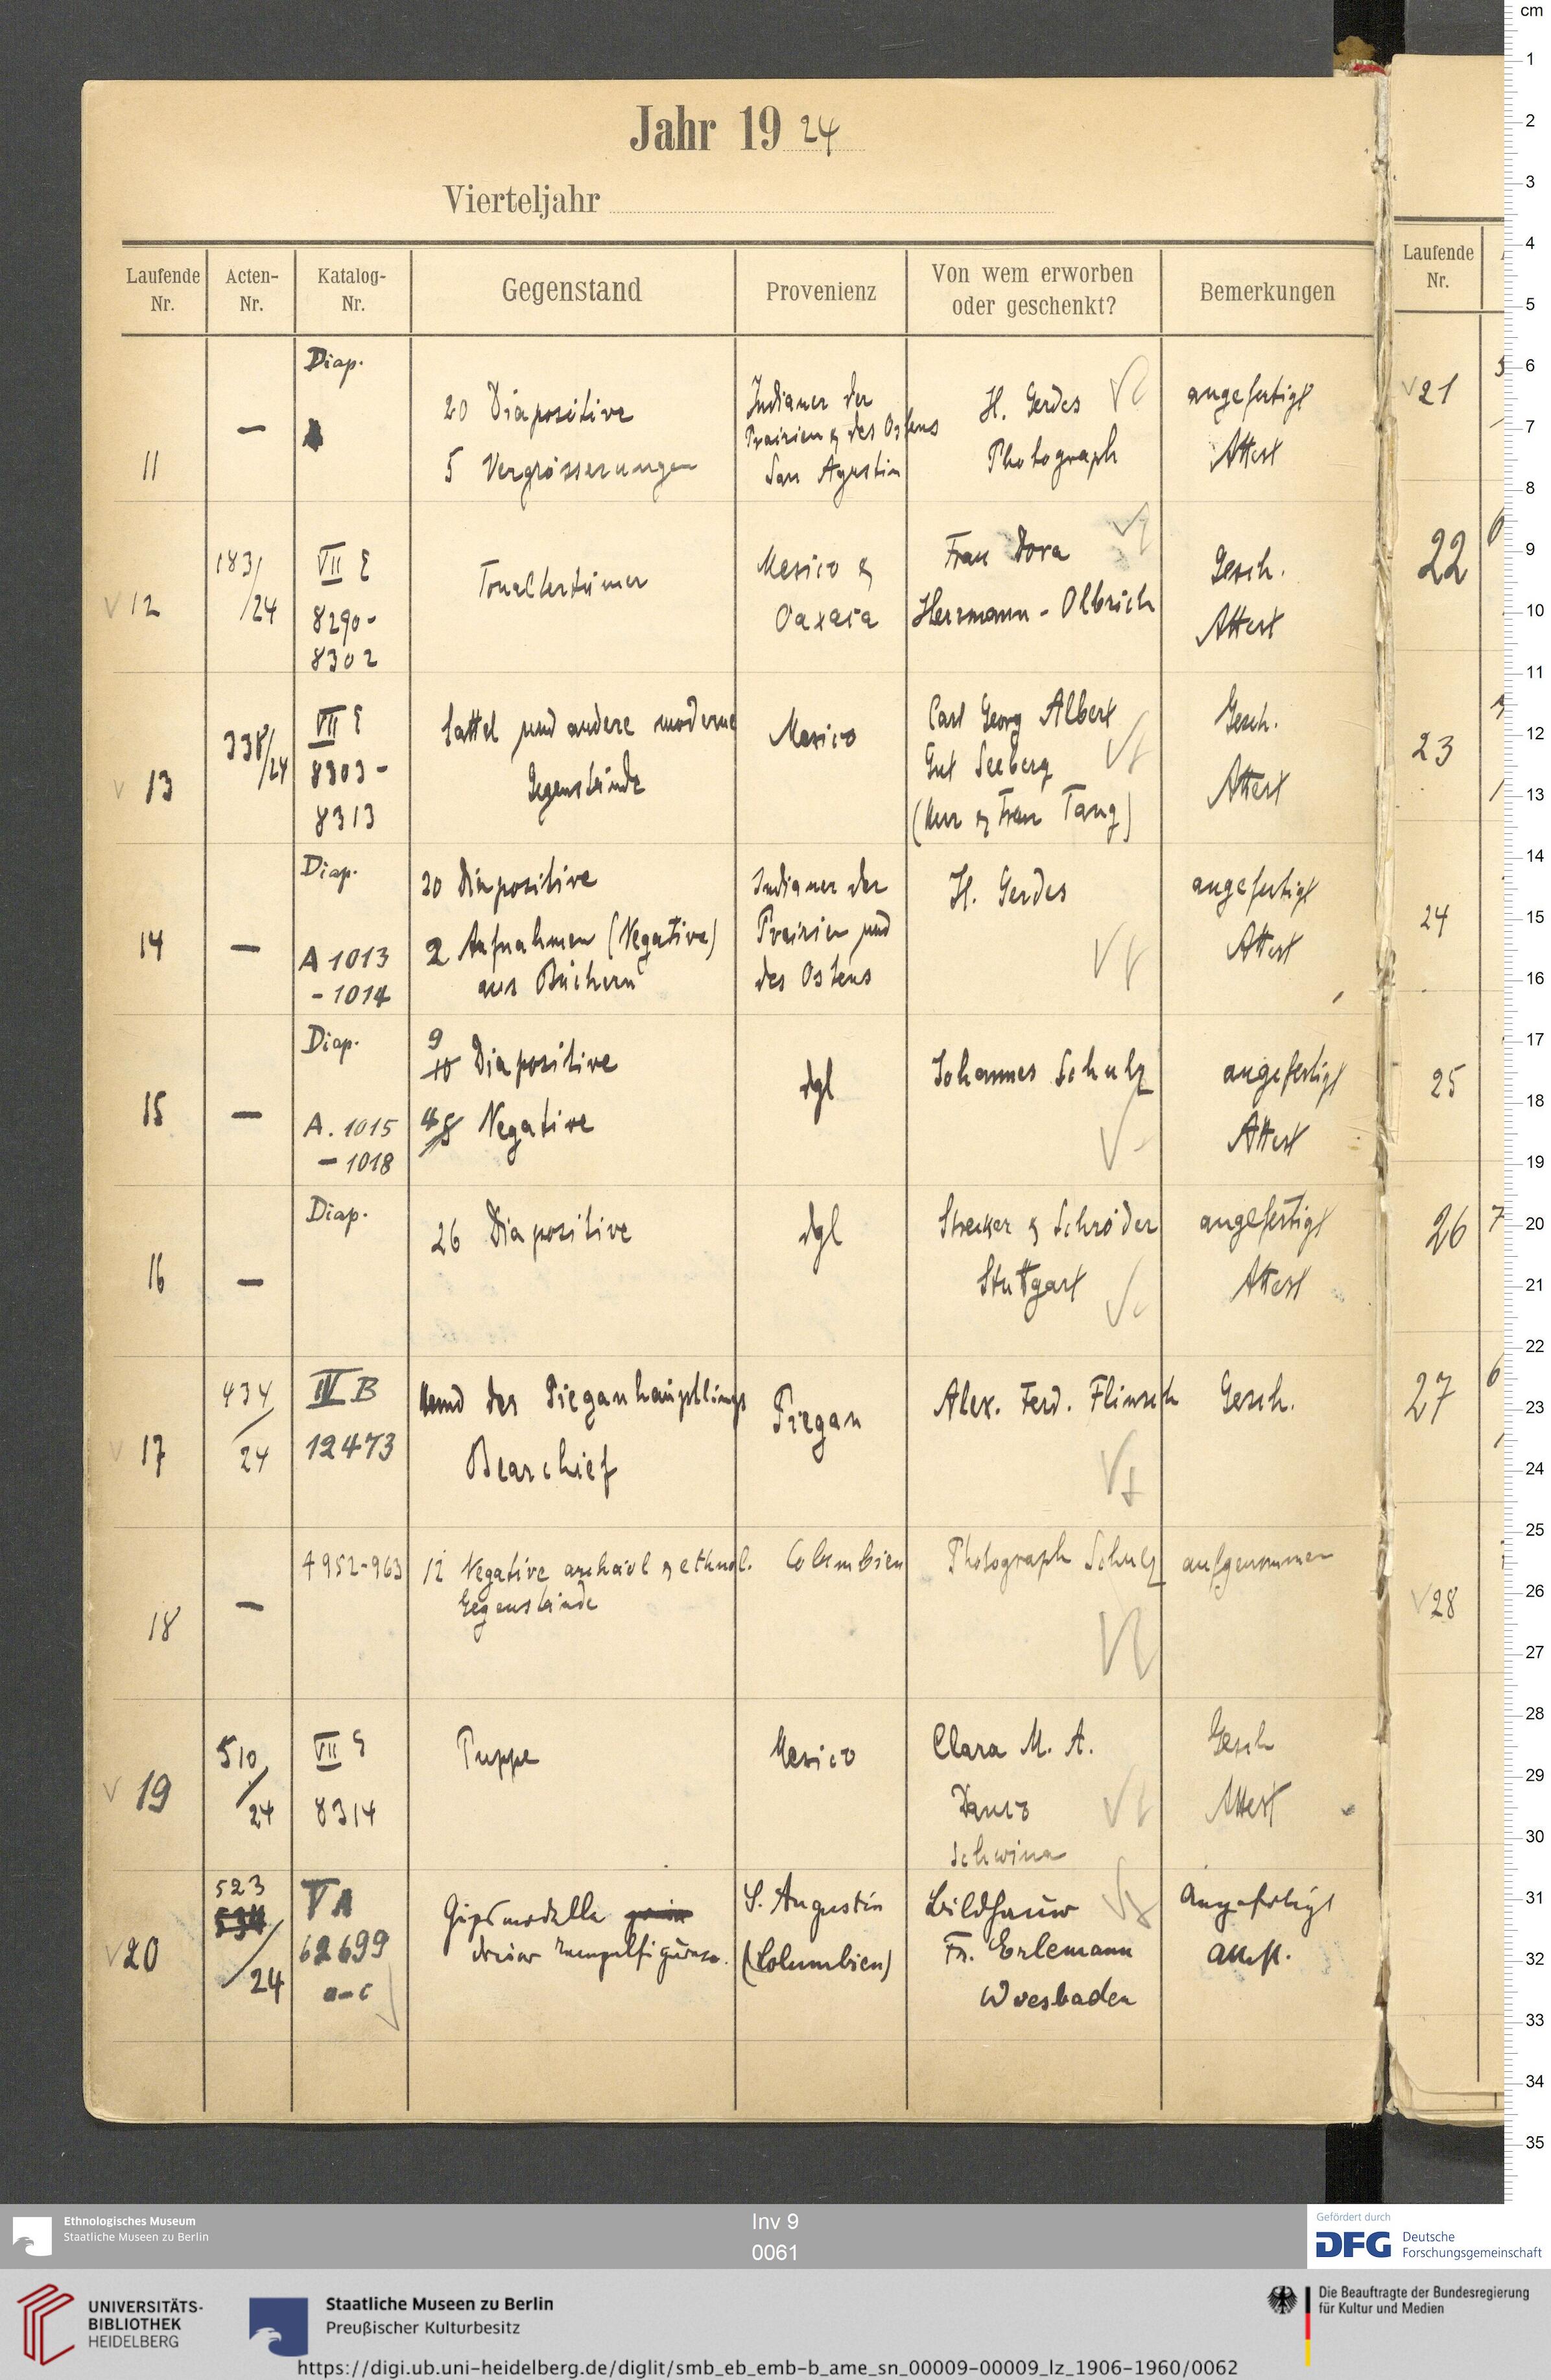 Jahr 19 24
Vierteljahr
Laufende Nr.
Acten-Nr.
Katalog-Nr.
Gegenstand
Provenienz
Von wem erworben oder geschenkt?
Bemerkungen
11
—
Diap.
20 Diapositive
5 Vergrösserungen
Indianer der
Prairien & des Ostens
San Agustin
H. Gerdes
Photograph
angefertigt
Attest
12
183/24
VII E
8290-
8302
Tonaltertümer
Mexico &
Oaxaca
Frau Dora
Herrmann-Olbrich
Gesch.
Attest
13
338/24
VII E
8303-
8313
Sattel und andere moderne
Gegenstände
Mexico
Carl Georg Albert
Gut Seeberg
(Herr & Frau Tang)
Gesch.
Attest
14
—
Diap.
A 1013
- 1014
20 Diapositive
2 Aufnahmen (Negative)
aus Büchern
Indianer der
Prairien und
des Ostens
H. Gerdes
angefertigt
Attest
15
—
Diap.
A. 1015
- 1018
9
10 Diapositive
4 5 Negative
dgl
Johannes Schulz
angefertigt
Attest
16
—
Diap.
26 Diapositive
dgl
Strecker & Schröder
Stuttgart
angefertigt
Attest
17
434/24
IV B
12473
Hemd des Pieganhäuptlings
Bearchief
Piegan
Alex. Ferd. Flinsch
Gesch.
18
—
A 952-963
12 Negative archäol & ethnol.
Gegenstände
Columbien
Photograph Schulz
aufgenommen
19
510/24
VII E
8314
Puppe
Mexico
Clara M. A.
Schwina
Gesch
Attest
20
523
24
V A
62699
a-c
Gipsmodelle
dreier Tempelfiguren.
S. Augustin
(Columbien)
Bildhauer
Fr. Erlemann
Wiesbaden
Angefertigt
Attest.
Laufende Nr.
21
22
23
24
25
26
27
28
cm
1
2
3
4
5
6
7
8
9
10
11
12
13
14
15
16
17
18
19
20
21
22
23
24
25
26
27
28
29
30
31
32
33
34
35
Ethnologisches Museum
Staatliche Museen zu Berlin
Inv 9
0061
Gefördert durch
DFG Deutsche
Forschungsgemeinschaft
UNIVERSITÄTS-
BIBLIOTHEK
HEIDELBERG
Staatliche Museen zu Berlin
Preußischer Kulturbesitz
Die Beauftragte der Bundesregierung
für Kultur und Medien
https://digi.ub.uni-heidelberg.de/diglit/smb_eb_emb-b_ame_sn_00009-00009_lz_1906-1960/0062